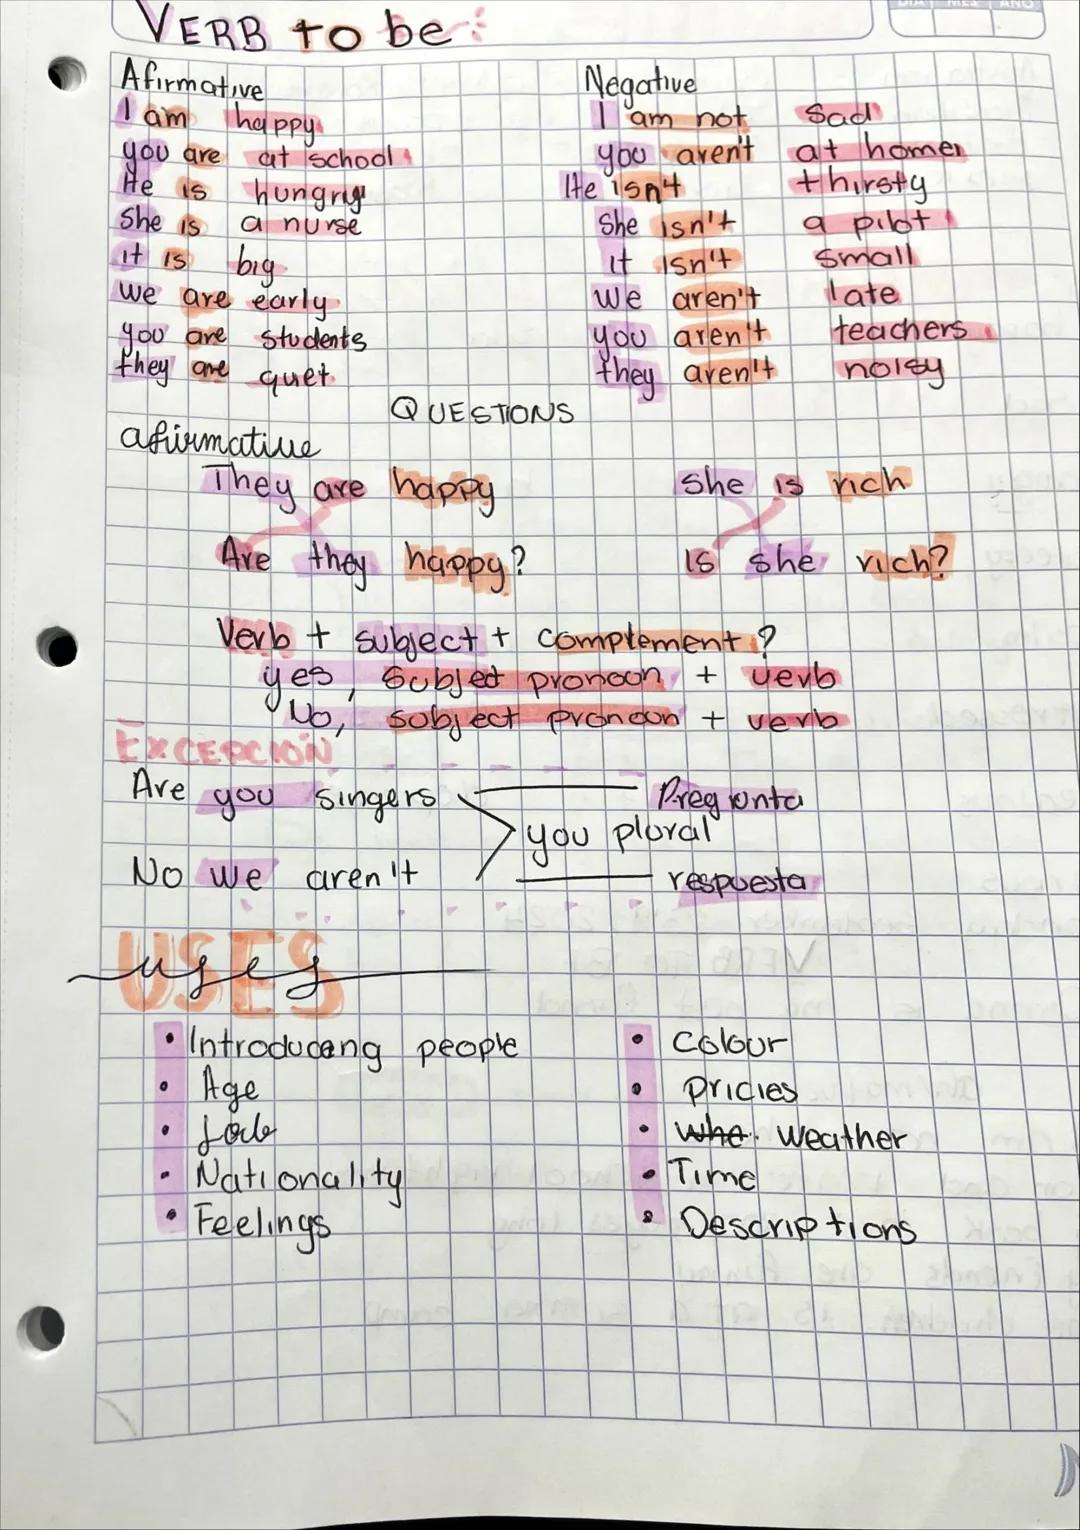 VERB TO be
DIA MES AÑO
Afirmative
I am happy
you are at school
He is hungry
she is a nurse
it is big
we are early
you are students
they are quet
Negative
I am not sad
you aren't at home
He isn't thirsty
she isn't a pilot
it isn't small
we aren't late
you aren't teachers
they aren't noisy
QUESTIONS
afirmative
They are happy
Are they happy?
she is rich
Is she rich?
Verb + subject + complement?
yes, subject pronoon + verb
No, subject pronoon + verb
EXCEPCIÓN
Are you singers
Pregunta
you plural
No we aren't
respuesta
USES
uses
• Introducang people
• Age
• Job
• Nationality
• Feelings
• Colour
• pricies
• whe. weather
• Time
• Descriptions